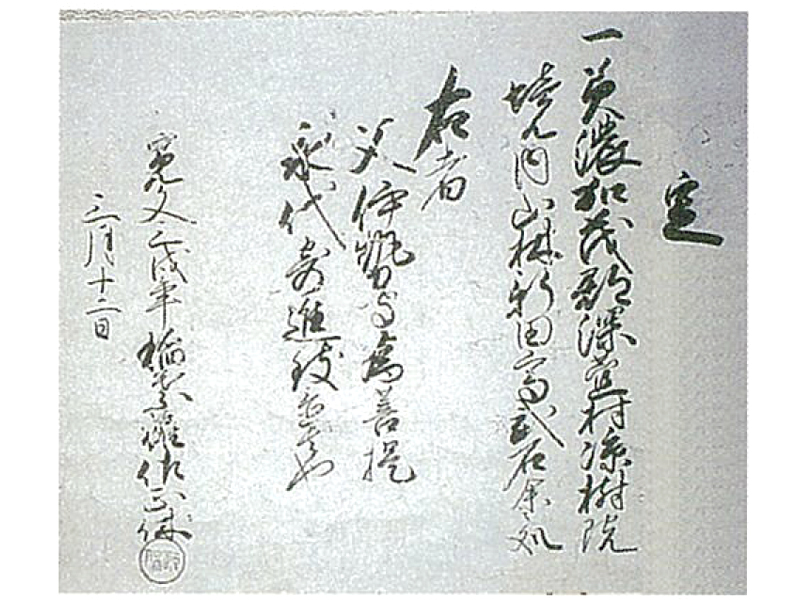 定
一美濃加茂郡深萱村深樹院
境内山林新田高弐石余処
右者
父伊勢守為菩提
永代寄進致者也
寛文 戌年稲葉権佐正休
三月十二日